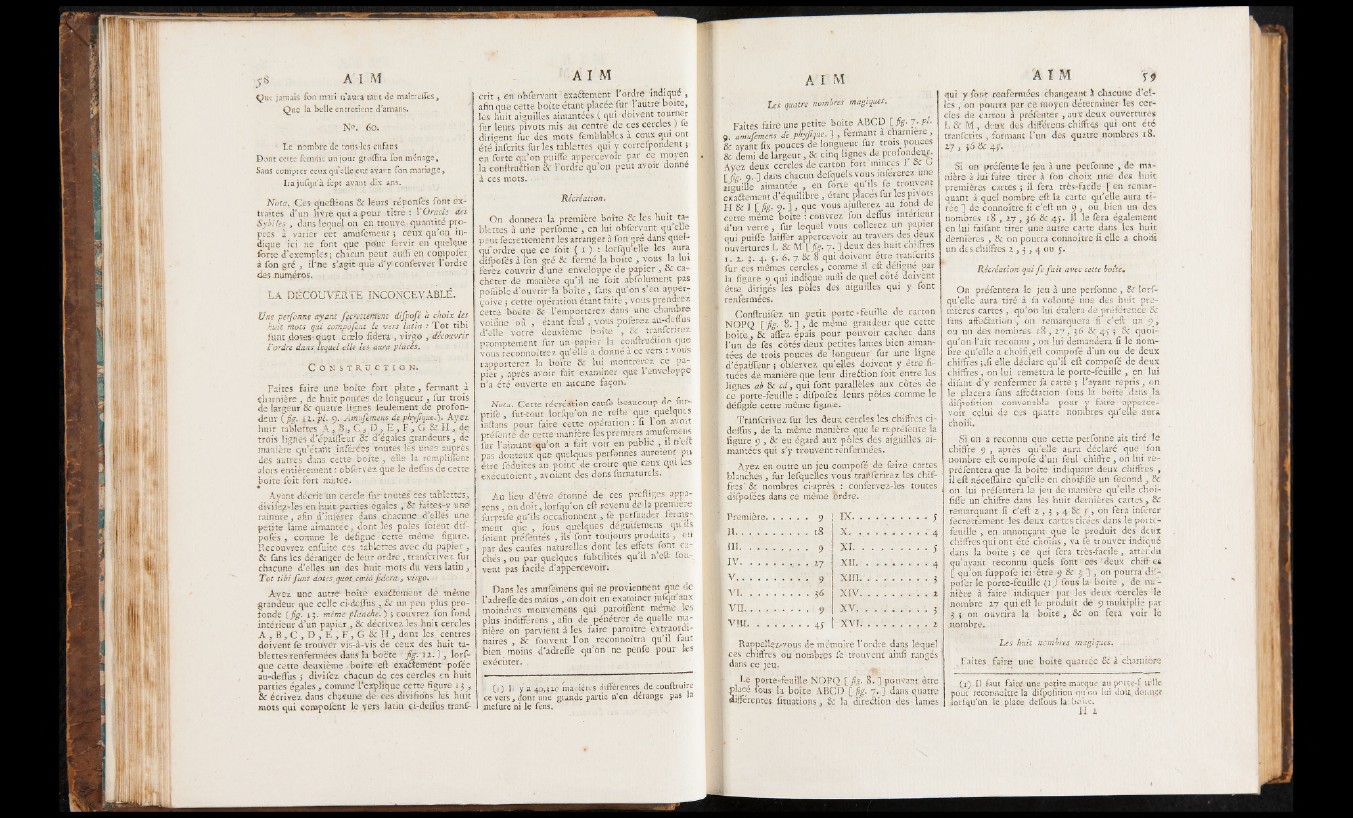 58 AIM
Que jamais ſon mari n'aura tant de maîtreſſes,
Que la belle entretient d'amans.
N°. 60.
Le nombre de tous les enfans
Dont cette femme un jour groſſira ſon ménage,
Sans compter ceux qu'elle eut avant ſon mariage,
Ira juſqu'à ſept avant dix ans.
Nota. Ces queſtions & leurs réponſes ſont ex-
traites d'un livre qui a pour titre : l'Oracle des
Sybilles, dans lequel on en trouve quantité pro-
pres à varier cet amuſement ; ceux qu'on in-
dique ici ne ſont que pour ſervir en quelque
ſorte d'exemples ; chacun peut auſſi en compoſer
à ſon gré, il ne s'agit que d'y conſerver l'ordre
des numéros.
LA DÉCOUVERTE INCONCEVABLE.
Une perſonne ayant ſecrettement diſpoſé à choix les
huit mots qui compoſent le vers latin : Tot tibi
ſunt dotes quot cœlo ſidera, virgo, découvrir
l'ordre dans lequel elle les aura placés.
CONSTRUCTION.
Faites faire une boîte fort plate, fermant à
charnière, de huit pouces de longueur, ſur trois
de largeur & quatre lignes ſeulement de profon-
deur (fig. 12. pl. 9. Amuſemens de phyſique.). Ayez
huit tablettes A, B, C, D, E, F, G & H, de
trois lignes d'épaiſſeur & d'égales grandeurs, de
manière qu'étant inſérées toutes les unes auprès
des autres dans cette boîte, elle la rempliſſent
alors entièrement : obſervez que le deſſus de cette
boîte ſoit fort mince.
Ayant décrit un cercle ſur toutes ces tablettes,
diviſez-les en huit parties égales, & faites-y une
rainure, afin d'inſérer dans chacune d'elles une
petite lame aimantée, dont les poles ſoient diſ-
poſés, comme le déſigne cette même figure.
Recouvrez enſuite ces tablettes avec du papier,
& ſans les déranger de leur ordre, tranſcrivez ſur
chacune d'elles un des huit mots du vers latin,
Tot tibi ſunt dotes quot cœlo ſidera, virgo.
Ayez une autre boîte exactement de même
grandeur que celle ci-deſſus, & un peu plus pro-
fonde (fig. 13. même planche.) ; couvrez ſon fond
intérieur d'un papier, & décrivez les huit cercles
A, B, C, D, E, F, G & H, dont les centres
doivent ſe trouver vis-à-vis de ceux des huit ta-
blettes renfermées dans la boîte fig. 12.], lorſ-
que cette deuxième boîte eſt exactement poſée
au-deſſus ; diviſez chacun de ces cercles en huit
parties égales, comme l'explique cette figure 13,
& écrivez dans chacune de ces diviſions les huit
mots qui compoſent le vers latin ci-deſſus tranſ-
AIM
crit, en obſervant exactement l'ordre indiqué,
afin que cette boîte étant placée ſur l'autre boîte,
les huit aiguilles aimantées (qui doivent tourner
ſur leurs pivots mis au centre de ces cercles) ſe
dirigent ſur des mots ſemblables à ceux qui ont
été inſcrits ſur les tablettes qui y correſpondent ;
en ſorte qu'on puiſſe appercevoir par ce moyen
la conſtruction & l'ordre qu'on peut avoir donné
à ces mots.
Récréation.
On donnera la première boîte & les huit ta-
blettes à une perſonne, en lui obſervant qu'elle
peut ſecrettement les arranger à ſon gré dans quel-
qu'ordre que ce ſoit (1) : lorſqu'elle les aura
diſpoſés à ſon gré & fermé la boîte, vous la lui
ferez couvrir d'une enveloppe de papier, & ca-
cheter de manière qu'il ne ſoit abſolument pas
poſſible d'ouvrir la boîte, ſans qu'on s'en apper-
çoive ; cette opération étant faite, vous prendrez
cette boîte & l'emporterez dans une chambre
voiſine où, étant ſeul, vous poſerez au-deſſus
d'elle votre deuxième boîte, & tranſcrirez
promptement ſur un papier la conſtruction que
vous reconnoîtrez qu'elle a donné à ce vers : vous
rapporterez la boîte & lui montrerez ce pa-
pier, après avoir fait examiner que l'enveloppe
n'a été ouverte en aucune façon.
Nota. Cette récréation cauſe beaucoup de ſur-
priſe, ſur-tout lorſqu'on ne reſte que quelques
inſtans pour faire cette opération : ſi l'on avoit
préſenté de cette manière les premiers amuſemens
ſur l'aimant qu'on a fait voir en public, il n'eſt
pas douteux que quelques perſonnes auroient pu
être ſéduites au point de croire que ceux qui les
exécutoient, avoient des dons ſurnaturels.
Au lieu d'être étonné de ces preſtiges appa-
rens, on doit, lorſqu'on eſt revenu de la première
ſurpriſe qu'ils occaſionnent, ſe perſuader ferme-
ment que, ſous quelques déguiſemens qu'ils
ſoient préſentés, ils ſont toujours produits, ou
par des cauſes naturelles dont les effets ſont ca-
chés, ou par quelques ſubtilités qu'il n'eſt ſou-
vent pas facile d'appercevoir.
Dans les amuſemens qui ne proviennent que de
l'adreſſe des mains, on doit en examiner juſqu'aux
moindres mouvemens qui paroiſſent même les
plus indifférens, afin de pénétrer de quelle ma-
nière on parvient à les faire paroître extraordi-
naires, & ſouvent l'on reconnoîtra qu'il faut
bien moins d'adreſſe qu'on ne penſe pour les
exécuter.
(1) Il y a 40,320 manières différentes de conſtruire
ce vers, dont une grande partie n'en dérange pas la
meſure ni le ſens.
AIM
Les quatre nombres magiques.
Faites faire une petite boîte ABCD [fig. 7. pl.
9. amuſemens de phyſique.], fermant à charnière,
& ayant ſix pouces de longueur ſur trois pouces
& demi de largeur, & cinq lignes de profondeur.
Ayez deux cercles de carton fort minces F & G
[fig. 9.] dans chacun deſquels vous inſérerez une
aiguille aimantée, en ſorte qu'ils ſe trouvent
exactement d'équilibre, étant placés ſur les pivots
H & I [fig. 9.], que vous ajuſterez au fond de
cette même boîte : couvrez ſon deſſus intérieur
d'un verre, ſur lequel vous collerez un papier
qui puiſſe laiſſer appercevoir au travers des deux
ouvertures L & M [fig. 7.] deux des huit chiffres
1. 2. 3. 4. 5. 6. 7 & 8 qui doivent être tranſcrits
ſur ces mêmes cercles, comme il eſt déſigné par
la figure 9 qui indique auſſi de quel côté doivent
être dirigés les pôles des aiguilles qui y ſont
renfermées.
Conſtruiſez un petit porte-feuille de carton
NOPQ [fig. 8.], de même grandeur que cette
boîte, & aſſez épais pour pouvoir cacher dans
l'un de ſes côtés deux petites lames bien aiman-
tées de trois pouces de longueur ſur une ligne
d'épaiſſeur ; obſervez qu'elles doivent y être ſi-
tuées de manière que leur direction ſoit entre les
lignes ab & cd, qui ſont parallèles aux côtés de
ce porte-feuille : diſpoſez leurs pôles comme le
déſigne cette même figure.
Tranſcrivez ſur les deux cercles les chiffres ci-
deſſus, de la même manière que le repréſente la
figure 9, & eu égard aux pôles des aiguilles ai-
mantées qui s'y trouvent renfermées.
Ayez en outre un jeu compoſé de ſeize cartes
blanches, ſur leſquelles vous tranſcrirez les chif-
fres & nombres ci-après : conſervez-les toutes
diſpoſées dans ce même ordre.
Première. . . . . . 9 | IX. . . . . . . . . 5
II. . . . . . . . . 18 | X. . . . . . . . . 4
III. . . . . . . . . 9 | XI. . . . . . . . . 5
IV. . . . . . . . . 27 | XII. . . . . . . . . 4
V. . . . . . . . . 9 | XIII. . . . . . . . . 3
VI. . . . . . . . . 36 | XIV. . . . . . . . . 2
VII. . . . . . . . . 9 | XV. . . . . . . . . 3
VIII. . . . . . . . . 45 | XVI. . . . . . . . . 2
Rappellez-vous de mémoire l'ordre dans lequel
ces chiffres ou nombres ſe trouvent ainſi rangés
dans ce jeu.
Le porte-feuille NOPQ [fig. 8.] pouvant être
placé ſous la boîte ABCD [fig. 7.] dans quatre
différentes ſituations, & la direction des lames
AIM 59
qui y ſont renfermées changeant à chacune d'el-
les, on pourra par ce moyen déterminer les cer-
cles de carton à préſenter, aux deux ouvertures
L & M, deux des différens chiffres qui ont été
tranſcrits, formant l'un des quatre nombres 18.
27, 36 & 45.
Si on préſente le jeu à une perſonne, de ma-
nière à lui faire tirer à ſon choix une des huit
premières cartes ; il ſera très-facile [en remar-
quant à quel nombre eſt la carte qu'elle aura ti-
rée] de connoître ſi c'eſt un 9, ou bien un des
nombres 18, 27, 36 & 45. Il le ſera également
en lui faiſant tirer une autre carte dans les huit
dernières, & on pourra connoître ſi elle a choiſi
un des chiffres 2, 3, 4 ou 5.
Récréation qui ſe fait avec cette boîte.
On préſentera le jeu à une perſonne, & lorſ-
qu'elle aura tiré à ſa volonté une des huit pre-
mières cartes, qu'on lui étalera de préférence &
ſans affectation, on remarquera ſi c'eſt un 9,
ou un des nombres 18, 27, 36 & 45 ; & quoi-
qu'on l'ait reconnu, on lui demandera ſi le nom-
bre qu'elle a choiſi, eſt compoſé d'un ou de deux
chiffres ; ſi elle déclare qu'il eſt compoſé de deux
chiffres, on lui remettra le porte-feuille, en lui
diſant d'y renfermer ſa carte ; l'ayant repris, on
le placera ſans affectation ſous la boîte dans la
diſpoſition convenable pour y faire apperce-
voir celui de ces quatre nombres qu'elle aura
choiſi.
Si on a reconnu que cette perſonne ait tiré le
chiffre 9, après qu'elle aura déclaré que ſon
nombre eſt compoſé d'un ſeul chiffre, on lui re-
préſentera que la boîte indiquant deux chiffres,
il eſt néceſſaire qu'elle en choiſiſſe un ſecond, &
on lui préſentera le jeu de manière qu'elle choi-
ſiſſe un chiffre dans les huit dernières cartes, &
remarquant ſi c'eſt 2, 3, 4 & 5, on fera inſérer
ſecrettement les deux cartes tirées dans le porte-
feuille, en annonçant que le produit des deux
chiffres qui ont été choiſis, va ſe trouver indiqué
dans la boîte ; ce qui ſera très-facile, attendu
qu'ayant reconnu quels ſont ces deux chiffres
[qu'on ſuppoſe ici être 9 & 3], on pourra diſ-
poſer le porte-feuille (1) ſous la boîte, de ma-
nière à faire indiquer par les deux cercles le
nombre 27 qui eſt le produit de 9 multiplié par
3 ; on ouvrira la boîte, & on fera voir le
nombre.
Les huit nombres magiques.
Faites faire une boîte quarrée & à charnière
(1) Il faut faire une petite marque au porte-feuille
pour reconnoître la diſpoſition qu'on lui doit donner
lorſqu'on le place deſſous la boîte.
H 2